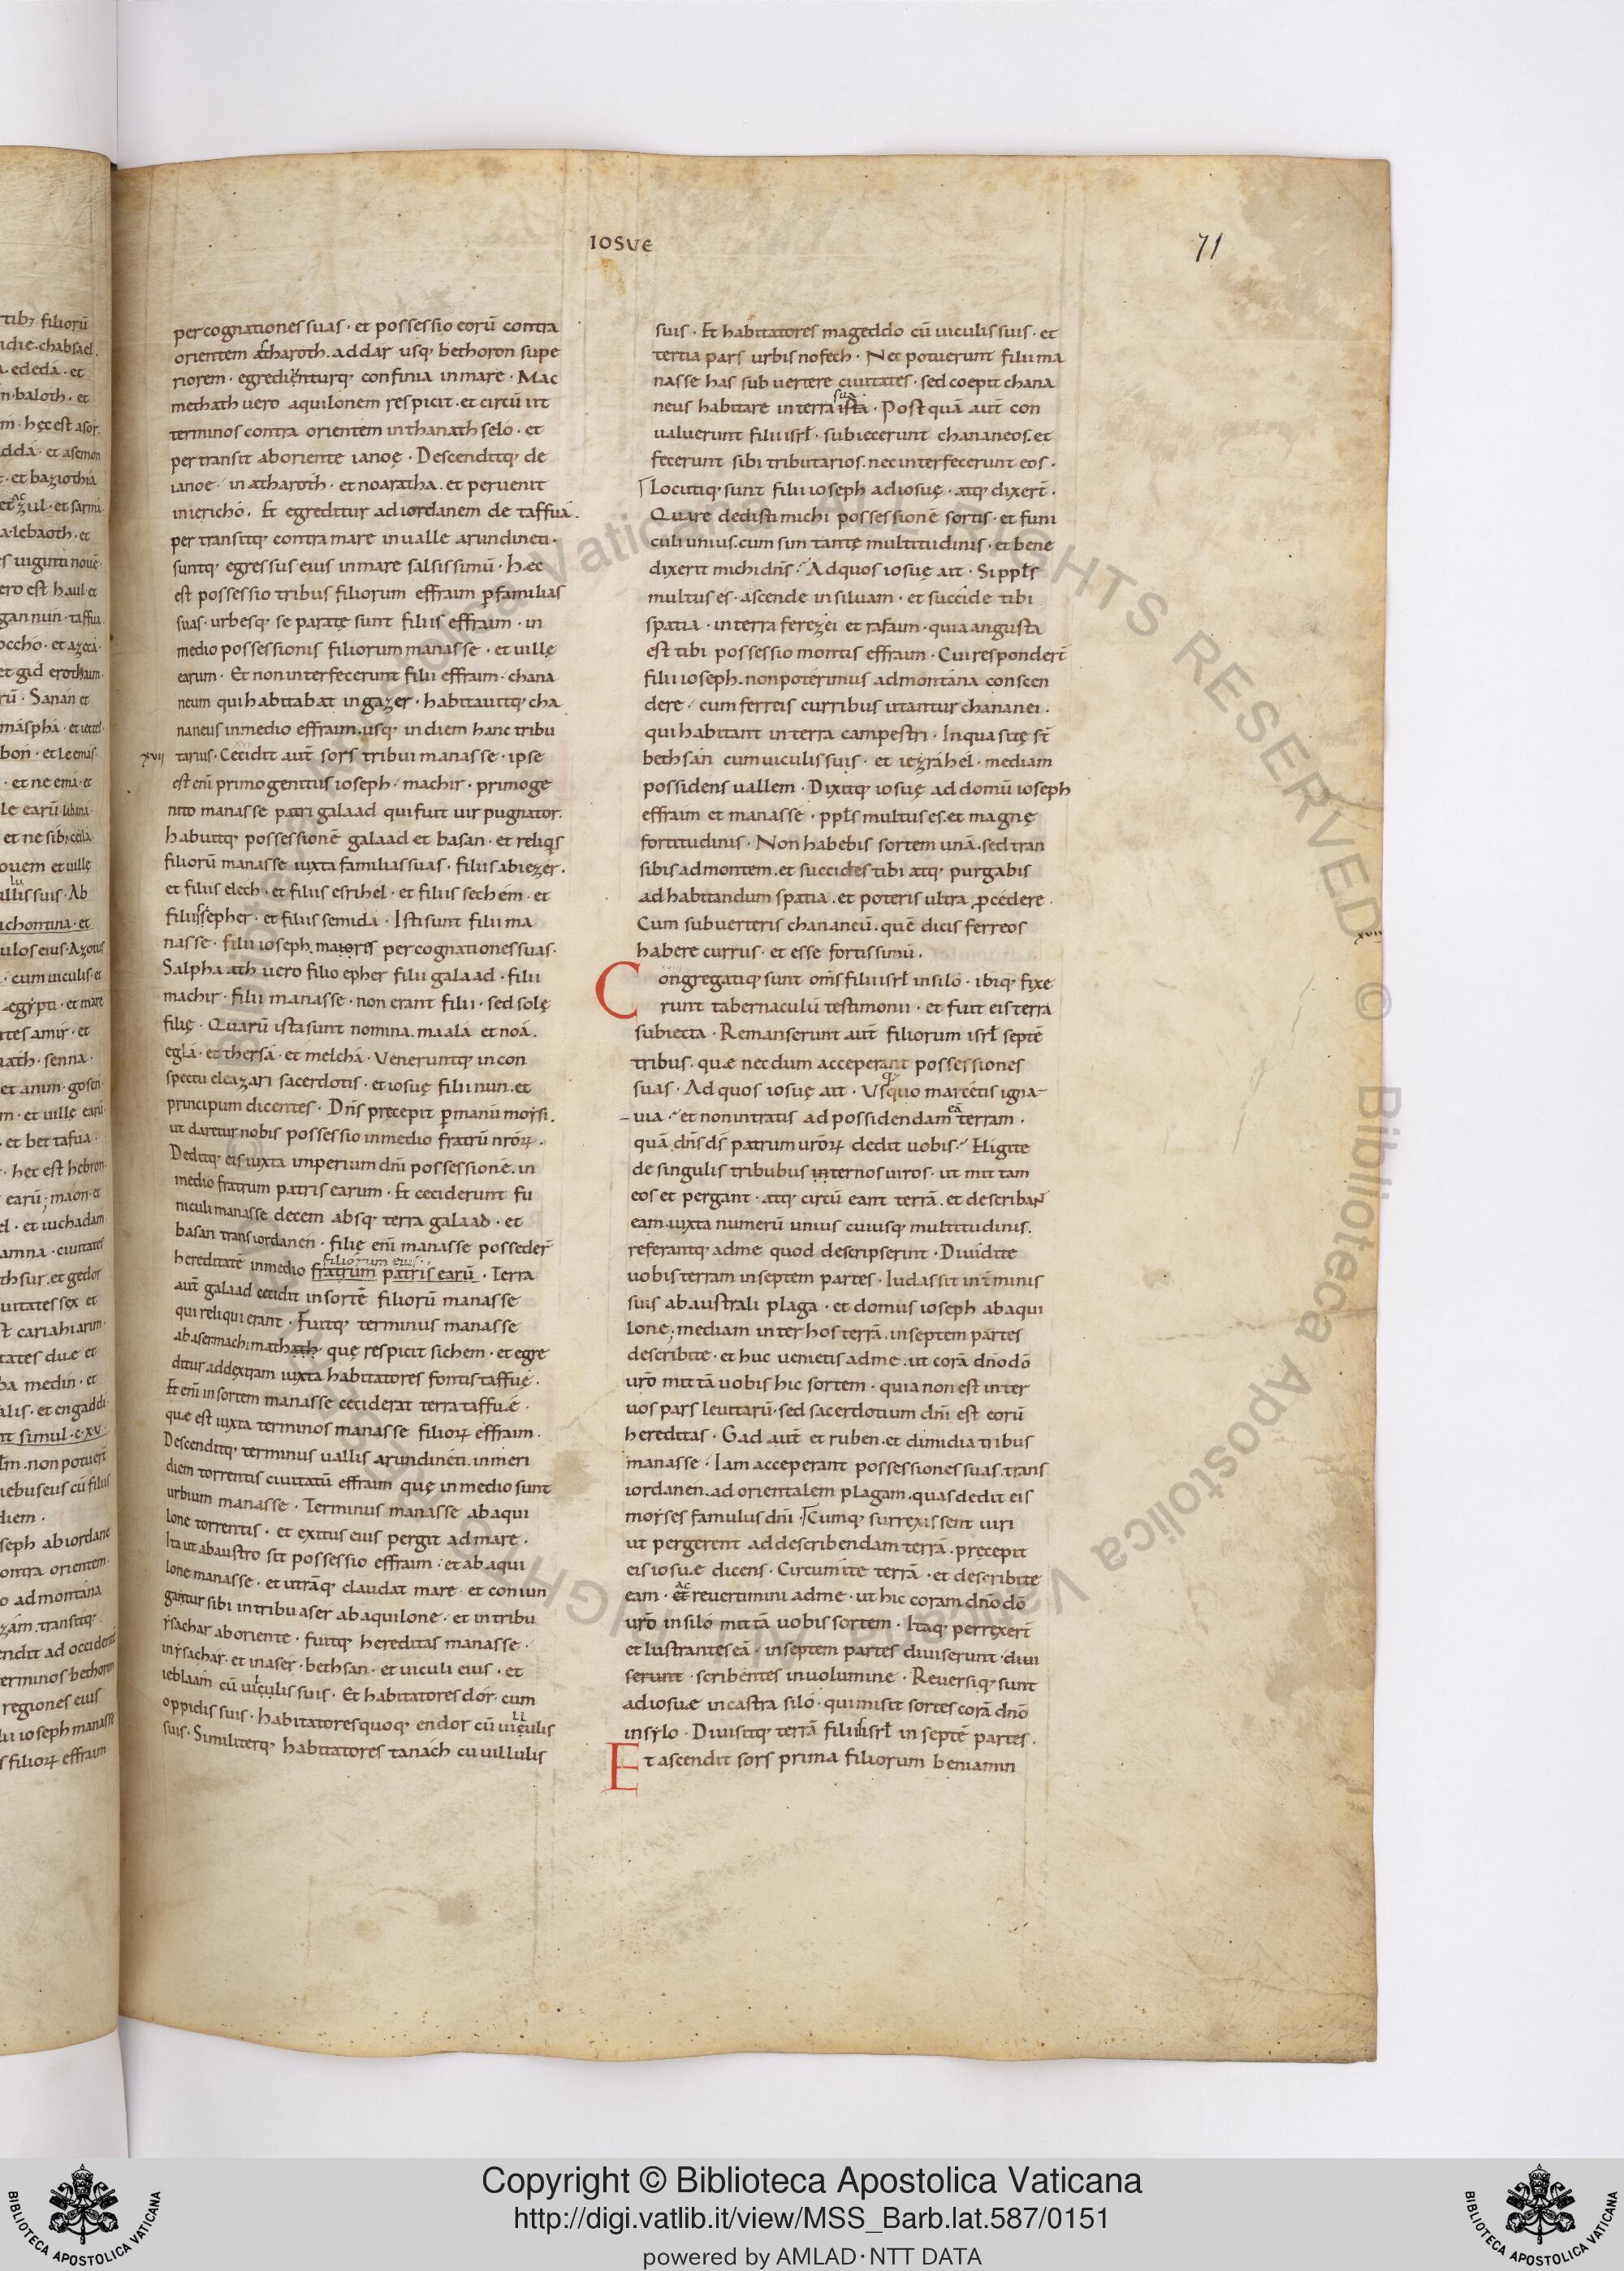 IOSVE
71
per cognationes suas · et possessio eorũ contra
orientem atharoth · addar usq; bethoron supe
riorem · egrediunturq; confinia in mare · Mac
methath uero aquilonem respicit · et circũ iit
terminos contra orientem in thanath selo · et
pertransit ab oriente ianoę · Descenditq; de
ianoe · in atharoth · et noaratha · et peruenit
in iericho · Et egreditur ad iordanem de taffua ·
pertransitq; contra mare in ualle arundineti ·
suntq; egressus eius in mare salsissimũ · Hęc
est possessio tribus filiorum effraim p familias
suas · urbesq; separatę sunt filiis effraim · in
medio possessionis filiorum manasse · et uillę
earum · Et non interfecerunt filii effraim · chana
neum qui habitabat in gazer · habitauitq; cha
naneus in medio effraim · usq; in diem hanc tribu
xvii
tarius · Cecidit aut̃ sors tribui manasse · ipse
est eni primogenitus ioseph · machir · primoge
nito manasse patri galaad qui fuit uir pugnator ·
habuitq; possessionẽ galaad et basan · et reliqis
filiorũ manasse iuxta familias suas · filiis abiezer ·
et filiis elech · et filiis esrihel · et filiis sechem · et
filiis epher · et filiis semida · Isti sunt filii ma
nasse · filii ioseph mares per cognationes suas ·
Salphaath uero filio epher filii galaad · filii
machir · filii manasse · non erant filii · sed solę
filię · Quarũ ista sunt nomina · maala et noa ·
egla · et thersa · et melcha · Veneruntq; in con
spectu eleazari sacerdotis · et iosuę filii nun · et
principum dicentes · Dñs pręcepit p manũ moysi ·
ut daretur nobis possessio in medio fratrũ nr̃oꝝ ·
Deditq; eis iuxta imperium dñi possessionẽ · in
medio fratrum patris earum · Et ceciderunt fu
niculi manasse decem absq; terra galaad · et
basan trans iordanen · filię eni manasse posseder̃
filiorum eius
hereditatẽ in medio fratrum patris earũ · Terra
aut̃ galaad cecidit in sortẽ filiorũ manasse
qui reliqui erant · Fuitq; terminus manasse
ab aser machmathath · quę respicit sichem · et egre
ditur ad dextram iuxta habitatores fontis taffuę ·
Et eni in sortem manasse ceciderat terra taffuę ·
quę est iuxta terminos manasse filioꝝ effraim ·
Descenditq; terminus uallis arundineti · in meri
diem torrentis ciuitatũ effraim quę in medio sunt
urbium manasse · Terminus manasse ab aqui
lone torrentis · et exitus eius pergit ad mare ·
Ita ut ab austro sit possessio effraim · et ab aqui
lone manasse · et utrãq; claudat mare · et coniun
gantur sibi in tribu aser ab aquilone · et in tribu
ysachar ab oriente · fuitq; hereditas manasse ·
in ysachar · et in aser · bethsan · et uiculi eius · et
ieblaam cũ uiculis suis · Et habitatores dor · cum
oppidis suis · habitatores quoq; endor cũ uiculis
suis · Similiterq; habitatores tanach cũ uillulis
suis · Et habitatores mageddo cũ uiculis suis · et
tertia pars urbis nofech · Nec potuerunt filii ma
nasse has subuertere ciuitates · sed coepit chana
neus habitare in terra ista · Postquã aut̃ con
ualuerunt filii isrł · subiecerunt chananeos · et
fecerunt sibi tributarios · nec interfecerunt eos ·
Locutiq; sunt filii ioseph ad iosuę · atq; dixer̃t ·
Quare dedisti michi possessionẽ sortis · et funi
culi unius · cum sim tantę multitudinis · et bene
dixerit michi dñs · Ad quos iosuę ait · Si ppls
multus es · ascende in siluam · et succide tibi
spatia · in terra ferezei et rafaim · quia angusta
est tibi possessio montis effraim · Cui responder̃t
filii ioseph · non poterimus ad montana conscen
dere · cum ferreis curribus utantur chananei ·
qui habitant in terra campestri · In qua sitę st̃
bethsan cum uiculis suis · et iezrahel · mediam
possidens uallem · Dixitq; iosuę ad domũ ioseph
effraim et manasse · ppls multus es · et magnę
fortitudinis · Non habebis sortem unã · sed tran
sibis ad montem · et succides tibi atq; purgabis
ad habitandum spatia · et poteris ultra pcedere ·
Cum subuerteris chananeũ · quẽ dicis ferreos
habere currus · et esse fortissimũ ·
Congregatiq; sunt oms̃ filii isrł in silo · ibiq; fixe
runt tabernaculũ testimonii · et fuit eis terra
subiecta · Remanserunt aut̃ filiorum isrł septẽ
tribus · quę necdum acceperant possessiones
suas · Ad quos iosuę ait · Usquo marcetis igna
uia · et non intratis ad possidendam terram ·
quã dñs ds̃ patrum ur̃oꝝ dedit uobis · Eligite
de singulis tribubus ternos uiros · ut mittam
eos et pergant · atq; circũeant terrã · et describant
eam iuxta numerũ unius cuiusq; multitudinis ·
referantq; ad me quod descripserint · Diuidite
uobis terram in septem partes · Iudas sit in t̃minis
suis ab australi plaga · et domus ioseph ab aqui
lone · mediam inter hos terrã · in septem partes
describite · et huc uenietis ad me · ut corã dño dõ
ur̃o mittã uobis hic sortem · quia non est inter
uos pars leuitarũ · sed sacerdotium dñi est eorũ
hereditas · Gad aut̃ et ruben · et dimidia tribus
manasse · Iam acceperant possessiones suas · trans
iordanen · ad orientalem plagam · quas dedit eis
moyses famulus dñi · Cumq; surrexissent uiri
ut pergerent ad describendam terrã · pręcepit
eis iosuę dicens · Circumite terrã · et describite
eam · ac reuertimini ad me · ut hic coram dño dõ
ur̃o in silo mittã uobis sortem · Itaq; perrexer̃t
et lustrantes eã · in septem partes diuiserunt · diui
serunt · scribentes in uolumine · Reuersiq; sunt
ad iosuę in castra silo · qui misit sortes corã dño
in sylo · Diuisitq; terrã filiis isrł in septẽ partes ·
Et ascendit sors prima filiorum beniamin
Copyright © Biblioteca Apostolica Vaticana
http://digi.vatlib.it/view/MSS_Barb.lat.587/0151
powered by AMLAD·NTT DATA
BIBLIOTECA APOSTOLICA VATICANA
BIBLIOTECA APOSTOLICA VATICANA